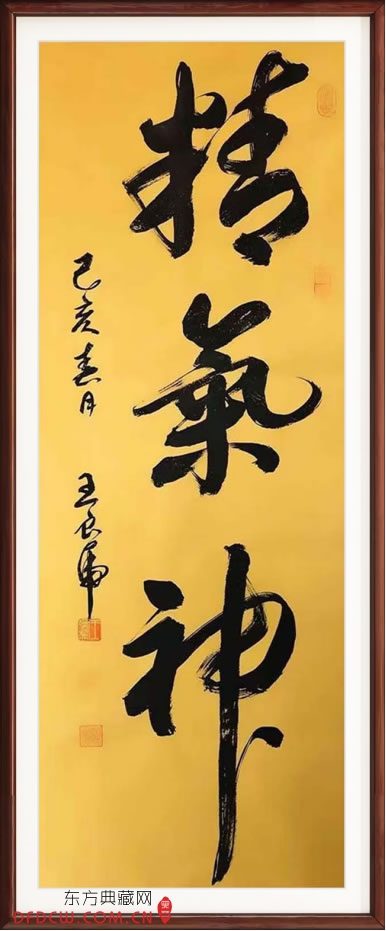 精氣神
己亥春月
王良虎
东方典藏网
DFDCW.COM.CN